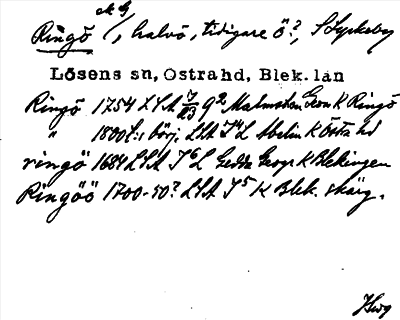 Ringö, halvö, tidigare ö?, S Lyckeby
Lösens sn, Östra hd, Blek. län
Ringö 1754 LSA 9² Malmsten Geom K Ringö
" 1800t:s börj. LSA Abelin K Östa hd
ringö 1684 LSA J⁶L Gedda Geogr K Blekingen
Ringöö 1700-50? LSA J⁵ K Blek. skärg.